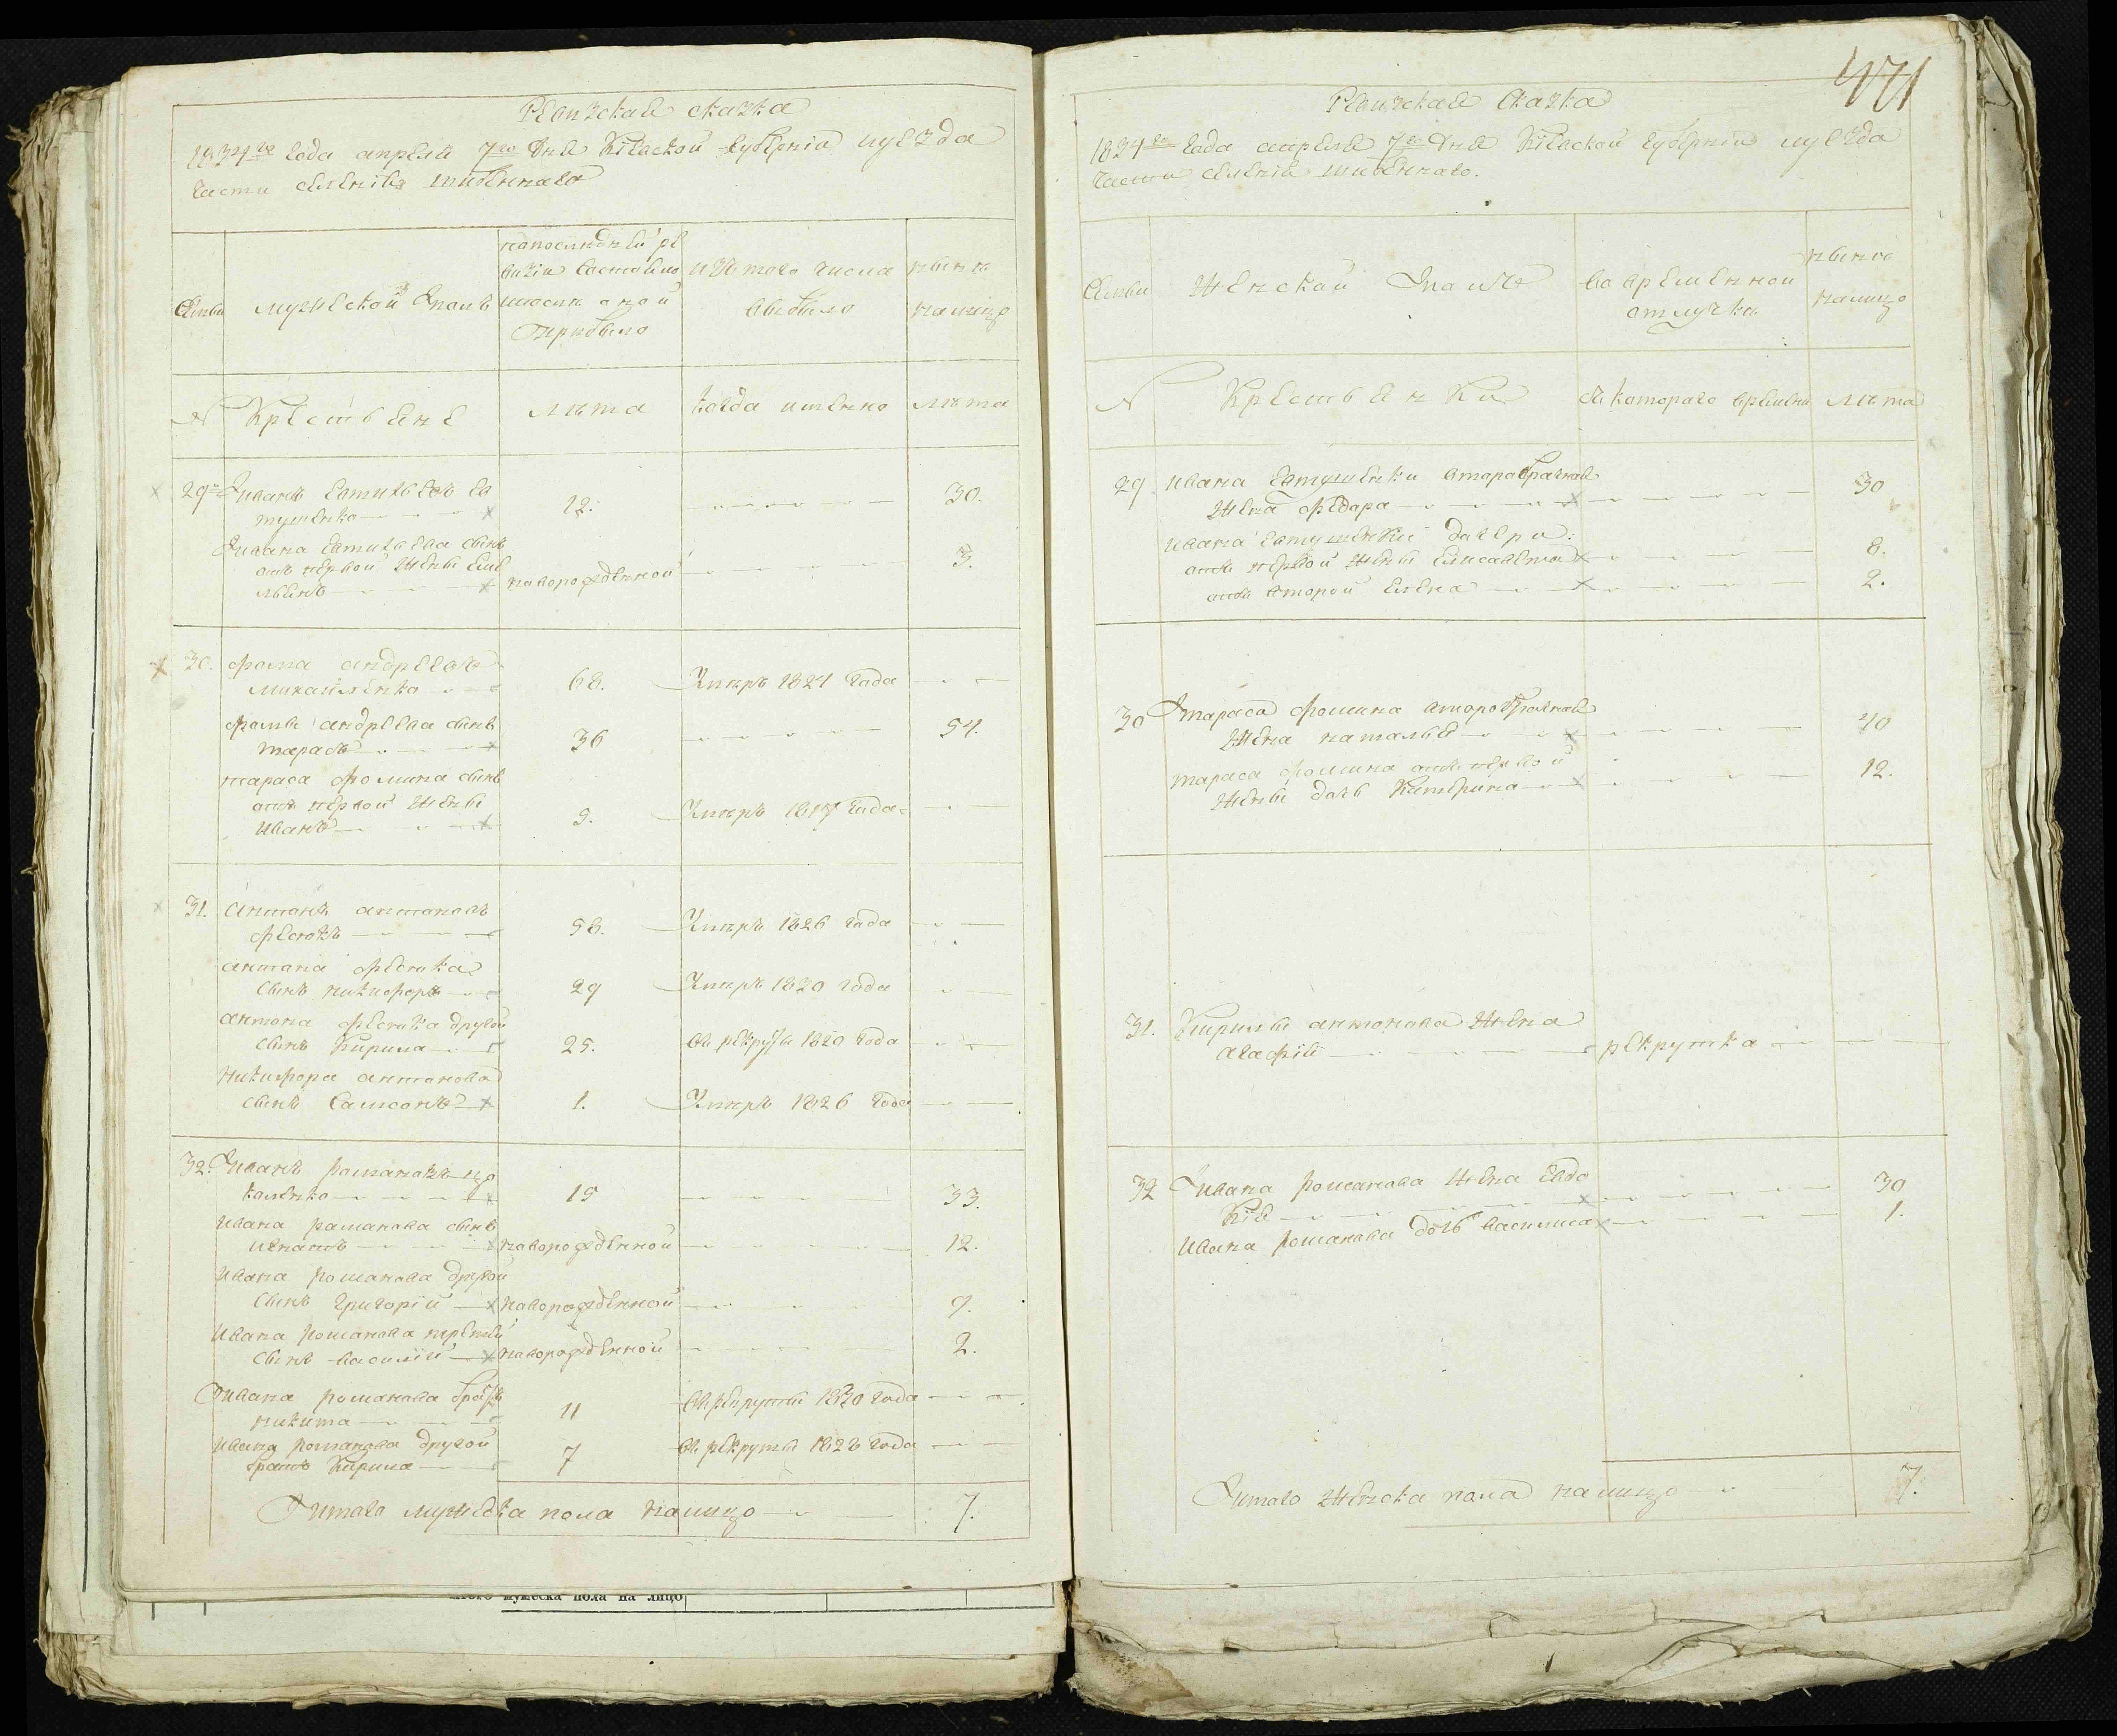 Ревизская сказка
1834го года апреля 7го дня Кіевской губерніи уезда
части селенія
Семьи
мужеской полъ
напоследней ре
визіи состояло
и после оной
прибыло
изъ того числа
выбыло
ныне
налицо
№
Крестьяне
лета
когда именно
лета
29
Иванъ Евтихіевъ Ев
тушенко
12.
30.
Ивана Евтихіева сынъ
отъ первой жены Еме
льянъ
новорожденной
3.
30.
Фома андреевъ
михайленко
68.
Умеръ 1821 года
Фомы андреева сынъ
тарасъ
36
54.
тараса фомина сынъ
отъ первой жены
иванъ
9.
Умеръ 1817 года
31.
Антонъ антоновъ
58.
Умеръ 1826 года
антона
сынъ никифоръ
29
Умеръ 1820 года
антона другой
сынъ Кирила
25.
въ рекруты 1820 года
никифора антонова
сынъ Самсонъ
1.
Умеръ 1826 года
32.
Иванъ романовъ цо
каленко
15
33.
Ивана романова сынъ
игнатъ
новорожденной
12.
Ивана романова другой
сынъ григорій
новорожденной
7.
Ивана романова третій
сынъ василій
новорожденной
2.
Ивана романова братъ
никита
11
въ рекруты 1820 года
Ивана романова другой
братъ Кирила
7
въ рекруты 1828 года
Итого мужеска пола налицо
7.
итого мужеска пола на лицо
471
Ревизская сказка
1834го года апреля 7го дня Кіевской губерніи уезда
части селенія
Семьи
Женской полъ
во временной
отлучке
ныне
налицо
№
Крестьянки
съ котораго времени
лета
29
Ивана Евтушенки второбрачная
жена федора
30
Ивана Евтушенки дочери:
отъ первой жены Елисавета
8.
отъ второй Елена
2.
30
Тараса фомина второбрачная
жена наталья
40
тараса фомина отъ первой
жены дочь Катерина
12.
31.
Кирилы антонова жена
агафія
рекрутка
32
Ивана романова жена Евдо
кія
30
Ивана романова дочь василиса
1.
Итого женска пола налицо
7.